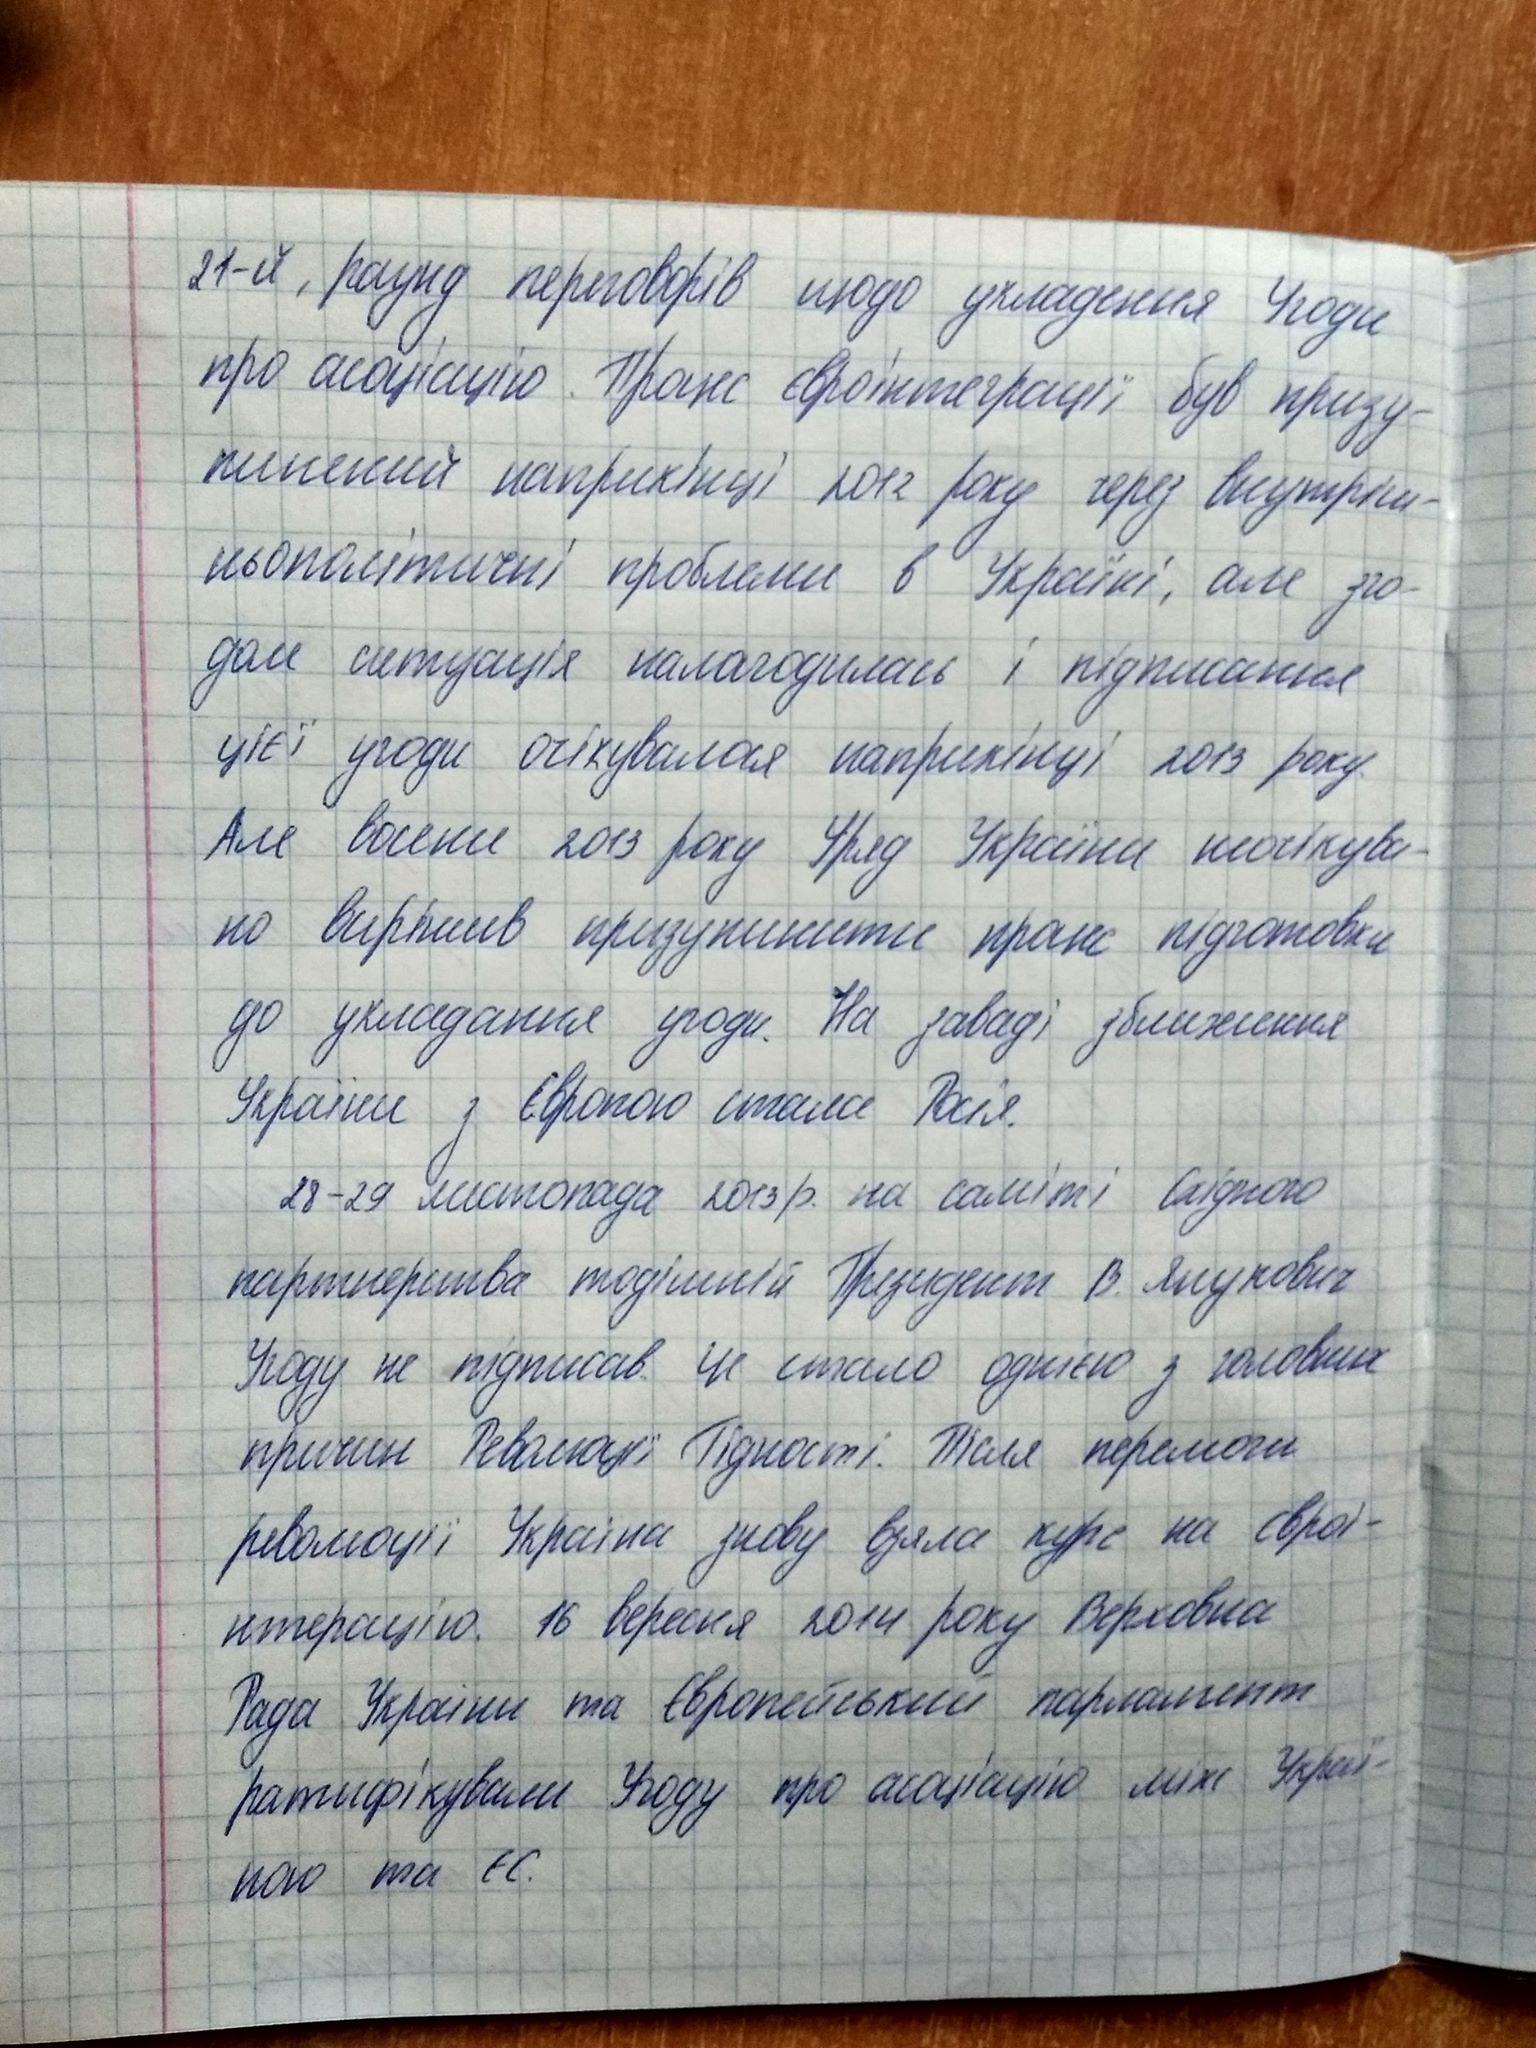 21-й, раунд переговорів щодо укладення Угоди
про асоціацію. Процес євроінтеграції був призу-
пинений наприкінці 2012 року через внутріш-
ньополітичні проблеми в Україні, але зго-
дом ситуація налагодилась і підписання
цієї угоди очікувалося наприкінці 2013 року.
Але восени 2013 року Уряд України неочікува-
но вирішив призупинити процес підготовки
до укладання угоди. На заваді зближення
України з Європою стала Росія.
28-29 листопада 2013 р. на саміті Східного
партнерства тодішній Президент В. Янукович
Угоду не підписав. Це стало однією з головних
причин Революції Гідності. Після перемоги
революції Україна знову взяла курс на євроі-
нтерацію. 16 вересня 2014 року Верховна
Рада України та Європейський парламент
ратифікували Угоду про асоціацію між Украї-
ною та ЄС.